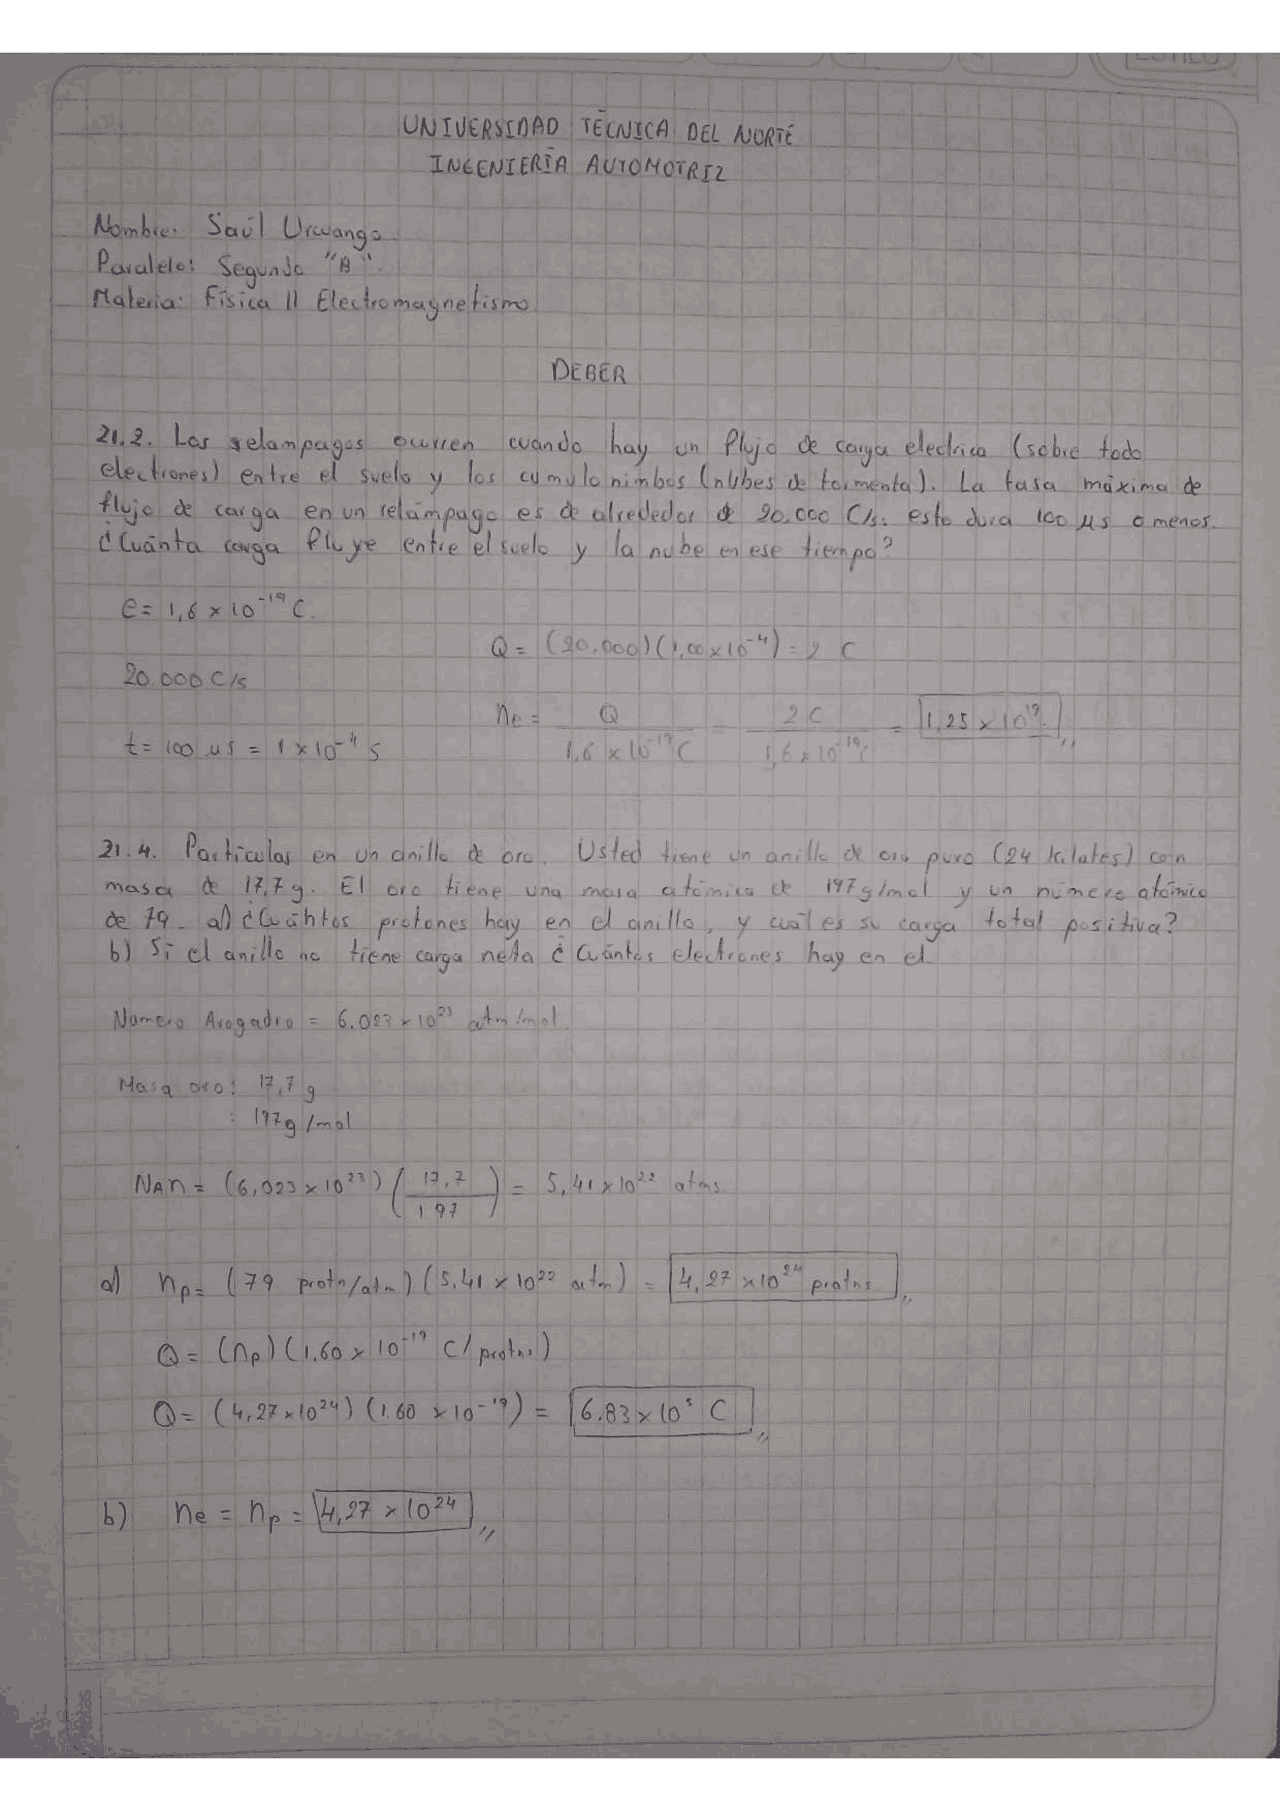 UNIVERSIDAD TÉCNICA DEL NORTE
INGENIERÍA AUTOMOTRIZ
Nombre: Saúl
Paralelo: Segundo "B".
Materia: Física II Electromagnetismo
DEBER
21.2. Los relampagos ocurren cuando hay un flujo de carga electrica (sobre todo
electrones) entre el suelo y los cumulonimbos (nubes de tormenta). La tasa máxima de
flujo de carga en un relámpago es de alrededor de 20.000 C/s: esto dura 100 μs o menos.
¿Cuánta carga fluye entre el suelo y la nube en ese tiempo?
e = 1,6 x 10⁻¹⁹ C.
Q = (20.000)(1,00x10⁻⁴) = 2 C
20.000 C/s
ne = Q / 1,6 x 10⁻¹⁹ C = 2 C / 1,6 x 10⁻¹⁹ C = 1,25 x 10¹⁹.
t = 100 μs = 1 x 10⁻⁴ s
21.4. Particulas en un anillo de oro. Usted tiene un anillo de oro puro (24 kilates) con
masa de 17,7 g. El oro tiene una masa atómica de 197 g/mol y un número atómico
de 79. a) ¿Cuántos protones hay en el anillo, y cuál es su carga total positiva?
b) Si el anillo no tiene carga neta ¿Cuántos electrones hay en el.
Numero Avogadro = 6.023 x 10²³ atm/mol.
Masa oro: 17,7 g
: 197g/mol
NAn = (6,023 x 10²³) (17,7 / 197) = 5,41 x 10²² atms
a) np = (79 protn/atm) (5,41 x 10²² atm) = 4,27 x 10²⁴ protns
Q = (np) (1,60 x 10⁻¹⁹ C/protns)
Q = (4,27x10²⁴) (1.60 x 10⁻¹⁹) = 6.83 x 10⁵ C
b) ne = np = 4,27 x 10²⁴
Notas